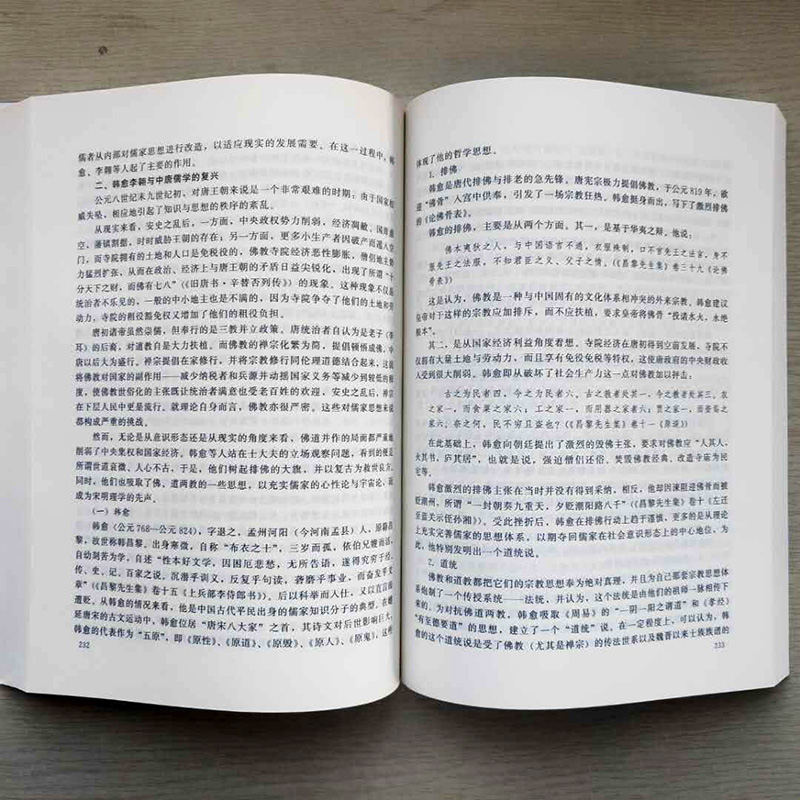 儒者从内部对儒家思想进行改造，以适应现实的发展需要。在这一过程中，韩
愈、李翱等人起了主要的作用。
二、韩愈李翱与中唐儒学的复兴
公元八世纪末九世纪初，对唐王朝来说是一个非常艰难的时期，由于国家权
威失坠，相应地引起了知识与思想的秩序的紊乱。
从现实来看，安史之乱后，一方面，中央政权势力削弱，经济凋敝，国库虚
空，藩镇割据，时时威胁王朝的存在；另一方面，更多小生产者因破产而遁入空
门，而寺院拥有的土地和人口是免税役的，佛教寺院经济恶性膨胀，僧侣地主势
力猛烈扩张，从而在政治、经济上与唐王朝的矛盾日益尖锐化，出现了所谓“十
分天下之财，而佛有七八”（《旧唐书·辛替否列传》）的现象。这种现象不仅是
统治者不乐见的，一般的中小地主也是不满的，因为寺院争夺了他们的土地和劳
动力，寺院的租役豁免权又增加了他们的租役负担。
唐初诸帝虽然崇儒，但奉行的是三教并立政策。唐统治者自认为是老子（李
耳）的后裔，对道教自是大力扶植。而佛教的禅宗化繁为简，提倡顿悟成佛，中
唐以后大为盛行。禅宗提倡在家修行，并将宗教修行同伦理道德结合起来，这就
将佛教对国家的副作用——减少纳税者和兵源并动摇国家义务等减少到较低的限
度，使佛教世俗化的主张既让统治者满意也受老百姓的欢迎，安史之乱后，禅宗
在下层人民中更是流行。就理论自身而言，佛教亦很严密。这些对儒家思想来说
都构成严重的挑战。
然而，无论是从意识形态还是从现实的角度来看，佛道并作的局面都严重地
削弱了中央集权和国家经济。韩愈等人站在士大夫的立场观察问题，看到的便是
所谓世道衰微、人心不古，于是，他们树起排佛的大旗，并以复古为救世良方。
同时，他们也吸取了佛、道两教的一些思想，以充实儒家的心性论与宇宙论，而
成为宋明理学的先声。
（一）韩愈
韩愈（公元768—公元824），字退之，孟州河阳（今河南孟县）人，原籍昌
黎，故世称韩昌黎。出身寒微，自称“布衣之士”，三岁而孤，依伯兄嫂而活，
自幼刻苦为学，自述“性本好文学，因困厄悲愁，无所告语，遂得究穷于经、
传、史、记、百家之说，沉潜乎训义，反复乎句读，砻磨乎事业，而奋发乎文
章”（《昌黎先生集》卷十五《上兵部李侍郎书》）。后以科举而入仕，又以直言而
遭贬。从韩愈的情况来看，他是中国古代平民出身的儒家知识分子的典型，在绵
延唐宋的古文运动中，韩愈位居“唐宋八大家”之首，其诗文对后世影响巨大。
韩愈的代表作为“五原”，即《原性》、《原道》、《原毁》、《原人》、《原鬼》，这些
232
体现了他的哲学思想。
1. 排佛
韩愈是唐代排佛与排老的急先锋。唐宪宗极力提倡佛教，于公元819年，欲
迎“佛骨”入宫中供奉，引发了一场宗教狂热。韩愈挺身而出，写下了激烈排佛
的《论佛骨表》。
韩愈的排佛，主要是从两个方面。其一，是基于华夷之辩。他说：
佛本夷狄之人，与中国语言不通，衣服殊制，口不言先王之法言，身不
服先王之法服，不知君臣之义、父子之情。（《昌黎先生集》卷三十九《论佛
骨表》）
这是认为，佛教是一种与中国固有的文化体系相冲突的外来宗教。韩愈建议
皇帝对于这样的宗教应加排斥，而不应扶植，要求皇帝将佛骨“投诸水火，永绝
根本”。
其二，是从国家经济利益角度着想。寺院经济在唐初得到空前发展，寺院不
仅拥有大量土地与劳动力，而且享有免税免役等特权，这使唐政府的中央财政收
入受到很大削弱。韩愈即从破坏了社会生产力这一点对佛教加以抨击：
古之为民者四，今之为民者六。古之教者处其一，今之教者处其三。农
之家一，而食粟之家六；工之家一，而用器之家六；贾之家一，而资焉之
家六；奈之何，民不穷且盗也？（《昌黎先生集》卷十一《原道》）
在此基础上，韩愈向朝廷提出了激烈的毁佛主张，要求对佛教应“人其人，
火其书，庐其居”，也就是说，强迫僧尼还俗、焚毁佛教经典、改造寺庙为民
宅等。
韩愈激烈的排佛主张在当时并没有得到采纳，相反，他却因谏阻迎佛骨而被
贬潮州，所谓“一封朝奏九重天，夕贬潮阳路八千”（《昌黎先生集》卷十《左迁
至蓝关示侄孙湘》）。受此挫折后，韩愈在排佛行动上趋于谨慎，更多的是从理论
上充实完善儒家的思想体系，以期夺回儒家在社会意识形态上的中心地位，为
此，他特别发明出一个道统说。
2. 道统
佛教和道教都把它们的宗教思想奉为绝对真理，并且为自己那套宗教思想体
系地制了一个传授系统——法统，并认为，这个法统是由他们的祖师一脉相传下
来的。为对抗佛道两教，韩愈吸取《周易》的“一阴一阳之谓道”和《孝经》
“有至德要道”的思想，建立了一个“道统”说。在一定程度上，可以认为，韩
愈的这个道统说是受了佛教（尤其是禅宗）的传法世系以及魏晋以来士族族谱的
233